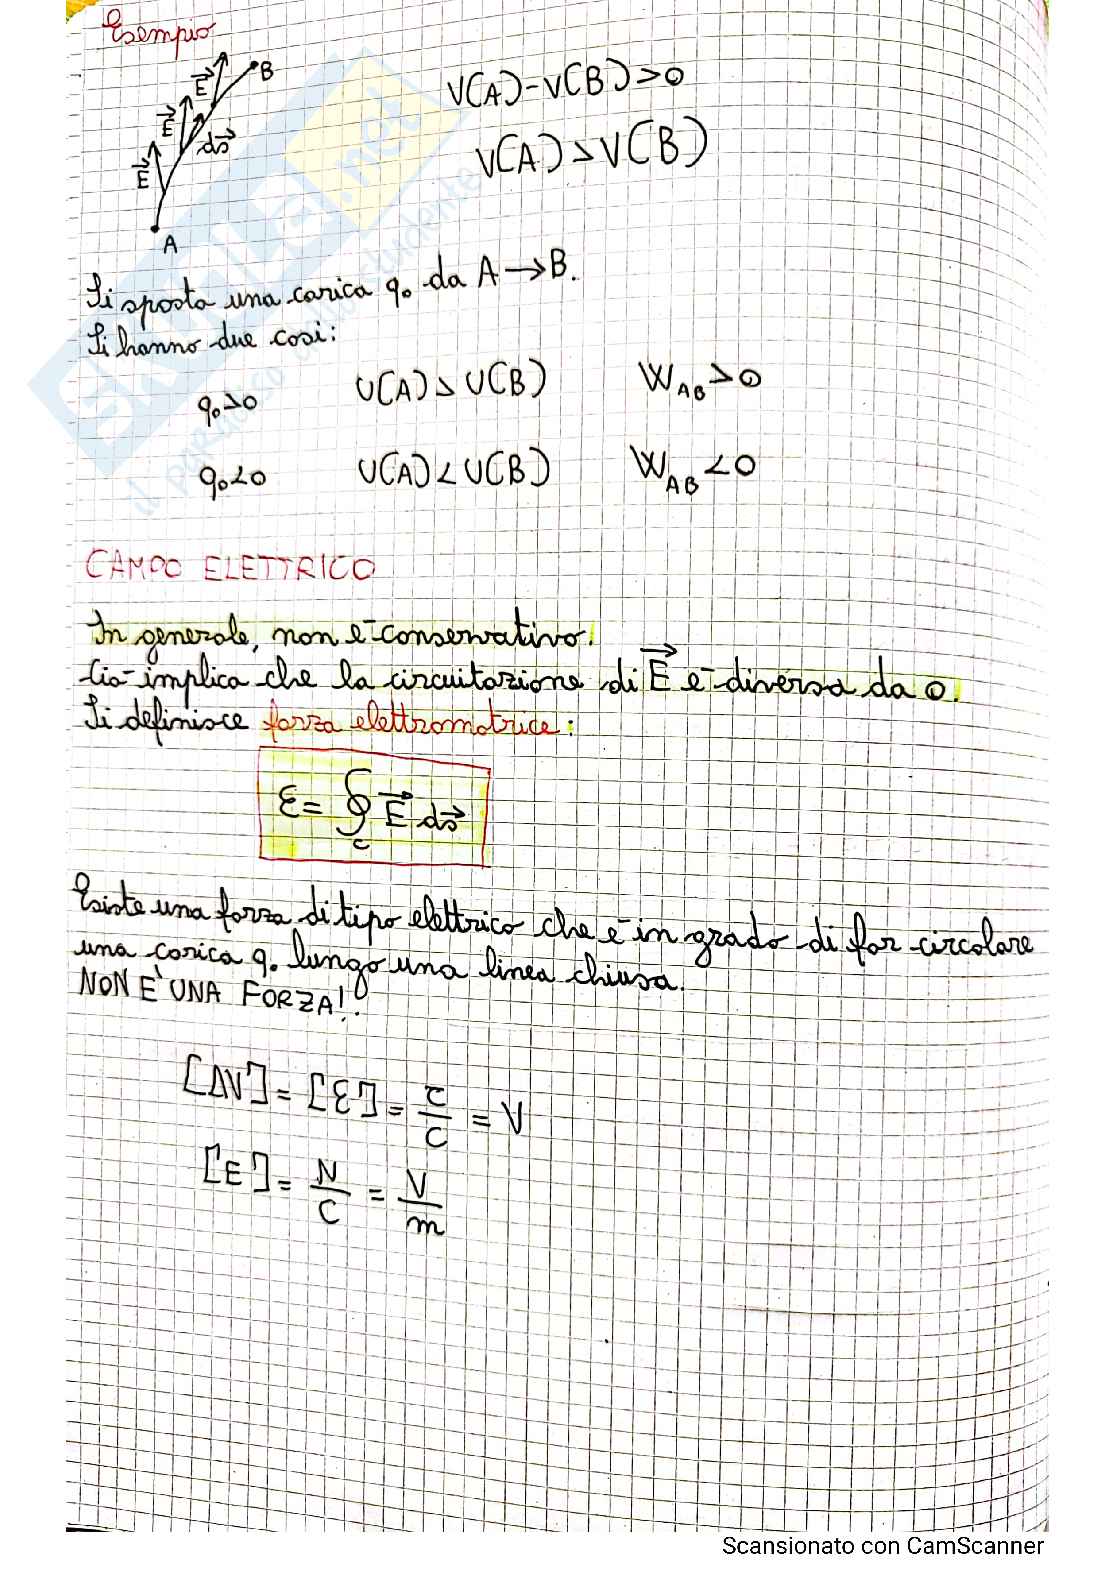 Esempio
B
E
V(A)-V(B)>0
E
ds
V(A)>V(B)
E
A
Si sposta una carica q₀ da A→B.
Si hanno due casi:
q₀>0 U(A)>U(B) W_AB>0
q₀<0 U(A)<U(B) W_AB<0
CAMPO ELETTRICO
In generale, non è conservativo.
Ciò implica che la circuitazione di E è diversa da 0.
Si definisce forza elettromotrice:
Ɛ=∮_C E ds
Esiste una forza di tipo elettrico che è in grado di far circolare
una carica q₀ lungo una linea chiusa.
NON È UNA FORZA!!
[ΔV]=[Ɛ]=J/C=V
[E]=N/C=V/m
Skuola.net
il paradiso dello studente
Scansionato con CamScanner